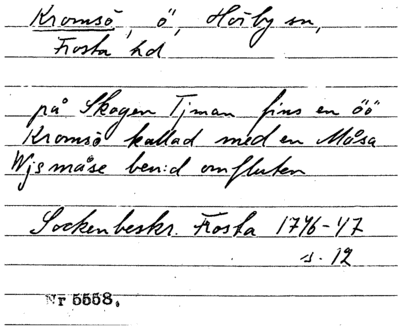 Kromsö, ö, Hörby sn,
Frosta hd
på Skogen Tjman fins en öö
Kromsö kallad med en Måsa
Wjsmåse ben:d omfluten
Sockenbeskr. Frosta 1746-47
s. 12
Nr 5558.